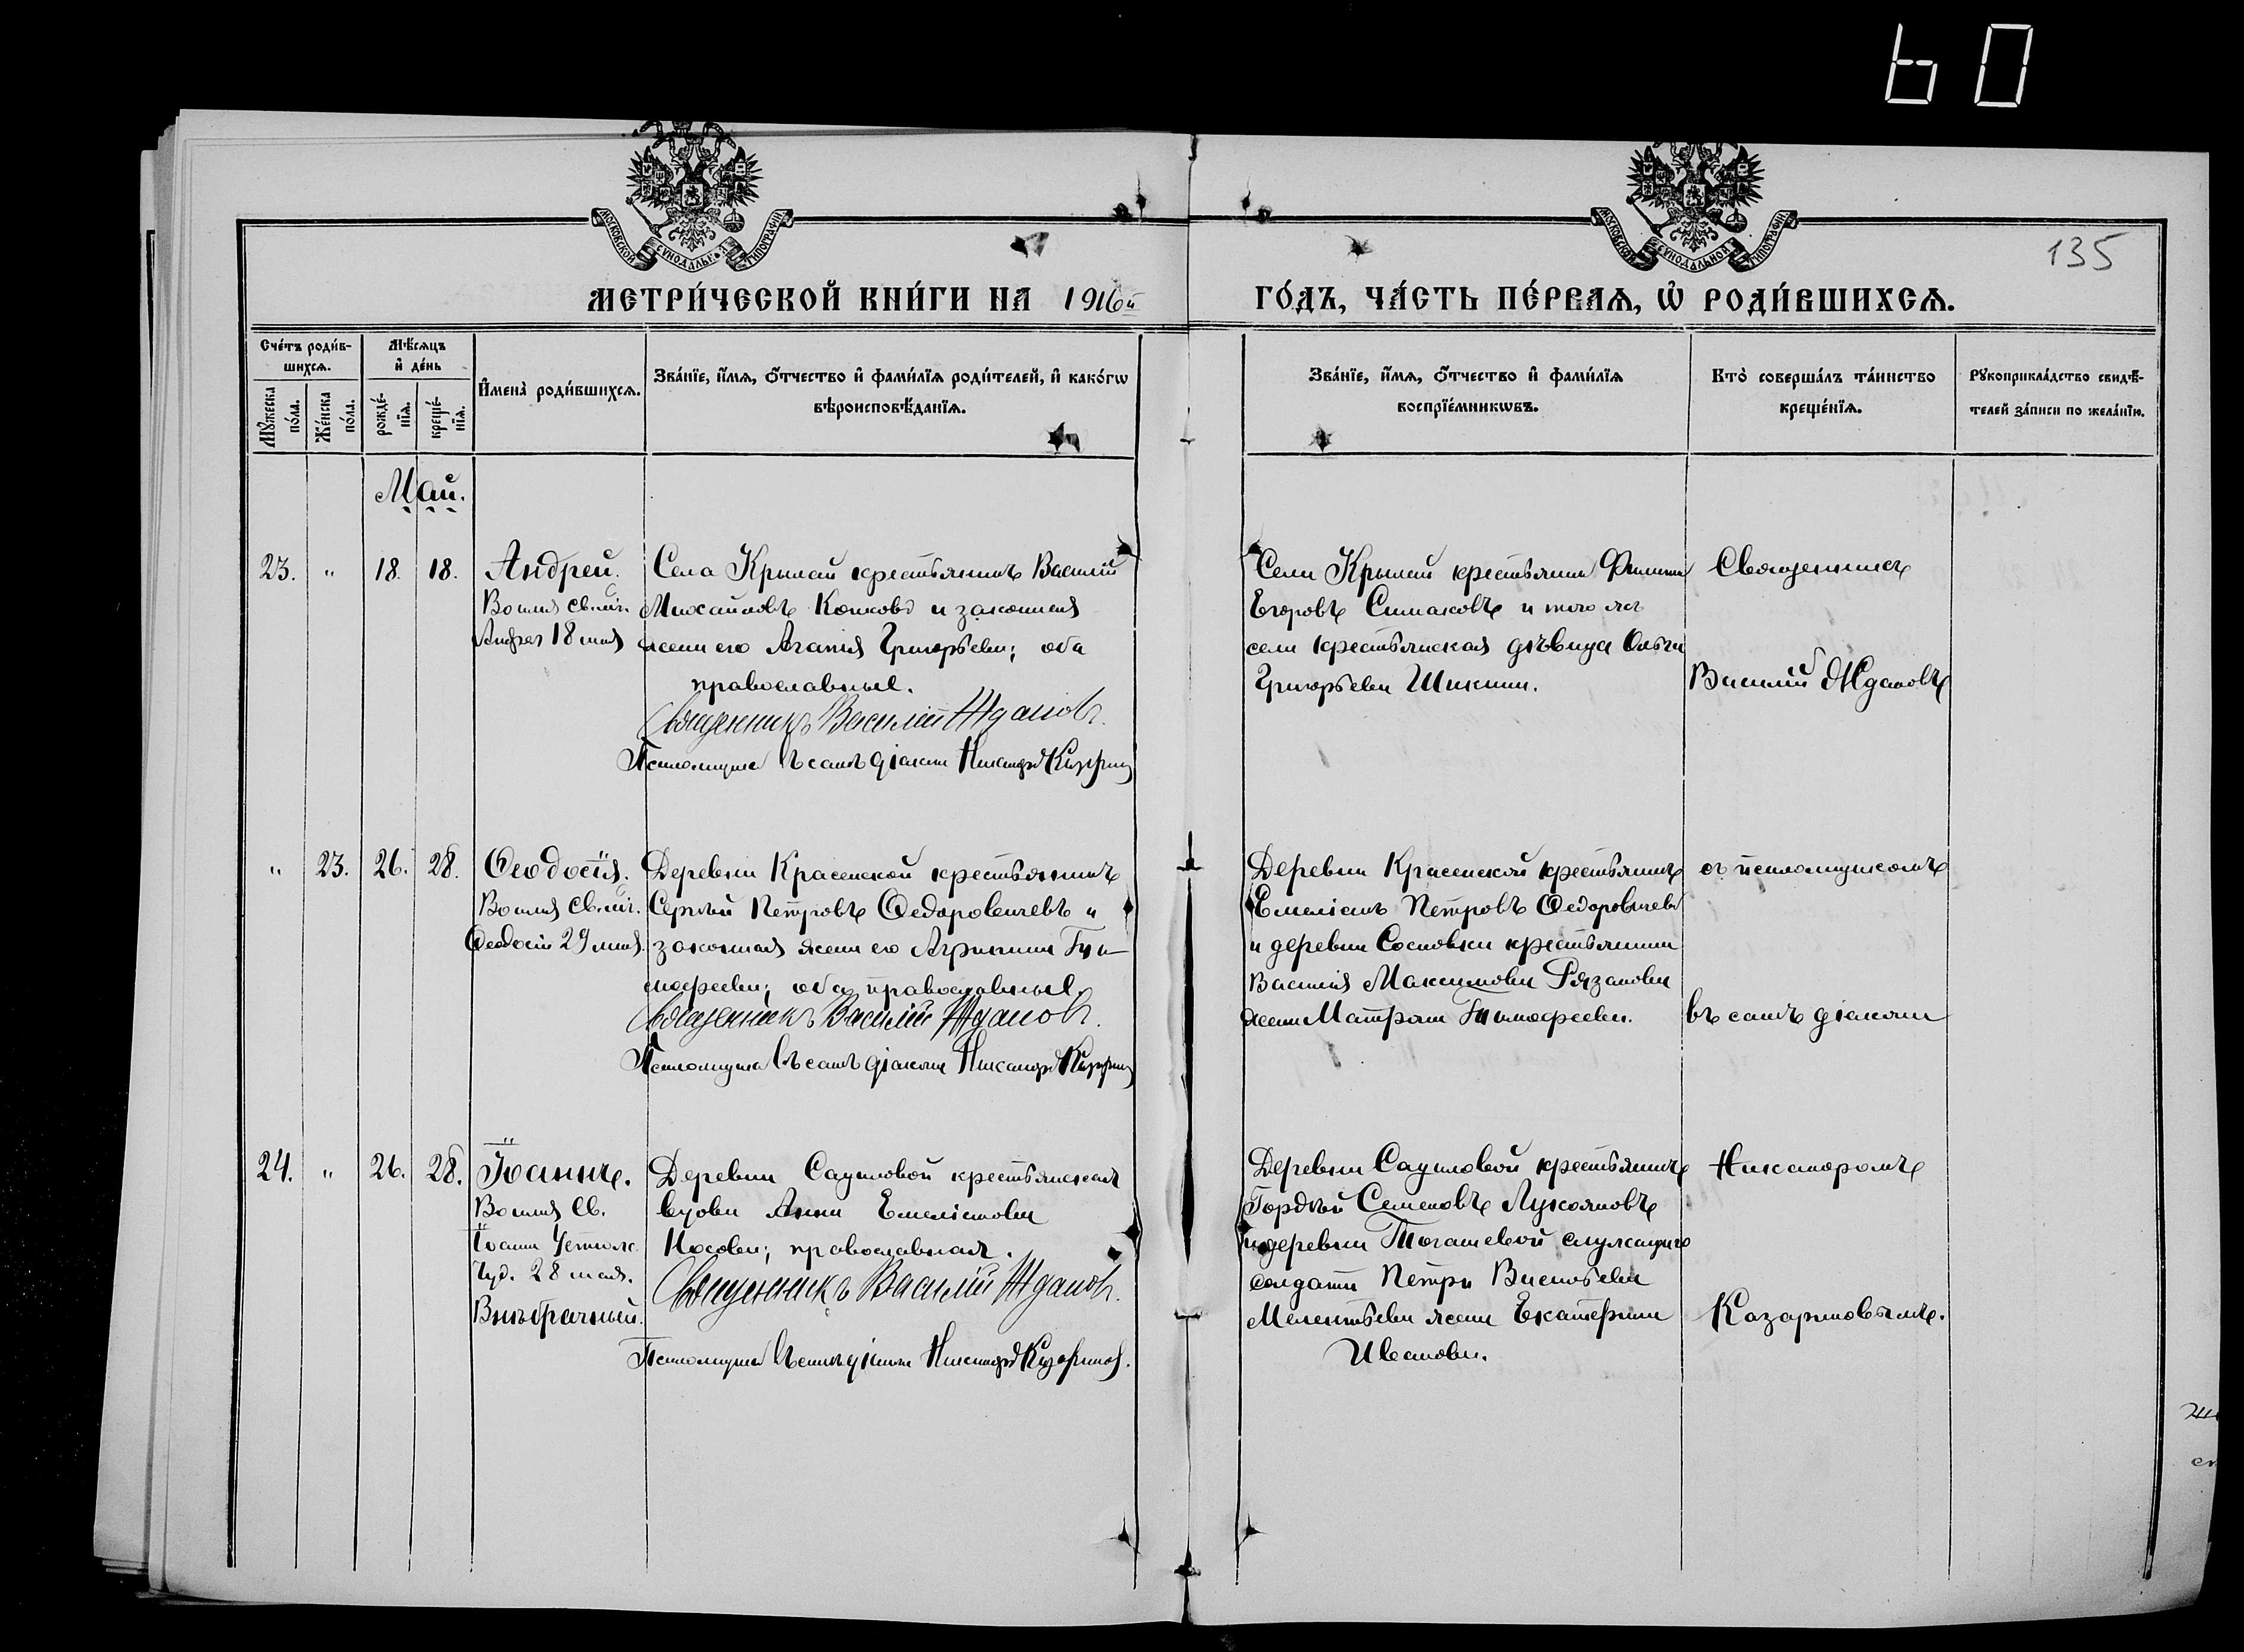 60
МОСКОВСКОЙ СУНОДАЛЬНОЙ ТИПОГРАФІИ
МОСКОВСКОЙ СУНОДАЛЬНОЙ ТИПОГРАФІИ
135
МЕТРИ́ЧЕСКОЙ КНИ́ГИ НА 1916й ГО́ДЪ, ЧА́СТЬ ПЕ́РВАѦ, Ѡ҆ РОДИ́ВШИХСѦ.
Сче́тъ роди́в-
шихсѧ.
Мꙋ́жеска по́ла.
Же́нска по́ла.
Мѣ́сѧцъ
и҆ де́нь
рожде́-
нїѧ.
креще́-
нїѧ.
И҆мена̀ роди́вшихсѧ.
Зва́нїе, и҆́мѧ, ѻ҆́тчество и҆ фами́лїѧ роди́телей, и҆ како́гѡ
вѣроисповѣ́данїѧ.
Зва́нїе, и҆́мѧ, ѻ҆́тчество и҆ фами́лїѧ
воспрїе́мникѡвъ.
Кто̀ соверша́лъ та́инство
креще́нїѧ.
Рꙋкоприкла́дство свидѣ́-
телей за́писи по жела́нїю.
Май.
23. " 18. 18.
Андрей.
Во имя св. муч.
Андрея 18 мая
Села Крылай крестьянинъ Василій
Михайловъ и законная
жена его Агапія Григорьева; оба
православные.
Священникъ Василій Ждановъ.
Псаломщикъ въ санѣ діакона Никаноръ
Села Крылай крестьянинъ Филиппъ
Егоровъ Симаковъ и того же
села крестьянская дѣвица Ольга
Григорьева Шикина.
Священникъ
Василій Ждановъ
" 23. 26. 28.
Ѳеодосія.
Во имя св. муч.
Ѳеодосіи 29 мая.
Деревни Красенской крестьянинъ
Сергѣй Петровъ Ѳедоровичевъ и
законная жена его Агрипина Ти-
мофеева; оба православные.
Священникъ Василій Ждановъ.
Псаломщикъ въ санѣ діакона Никаноръ
Деревни Красенской крестьянинъ
Емеліанъ Петровъ Ѳедоровичевъ
и деревни Сосновки крестьянина
Василія Максимова Рязанова
жена Матрона Тимофеева.
съ псаломщикомъ
въ санѣ діакона
24. " 26. 28.
Іоаннъ.
Во имя Св.
Іоанна Устюж.
Чуд. 28 мая.
Внѣбрачный.
Деревни Саумовой крестьянская
вдова Анна Емеліанова
Носова; православная.
Священникъ Василій Ждановъ.
Псаломщикъ въ санѣ діакона Никаноръ
Деревни Саумовой крестьянинъ
Гордѣй Семеновъ Лукояновъ
и деревни служащаго
солдата Петра Васильева
Мелентьева жена Екатерина
Иванова.
Никаноромъ
Казариновымъ.